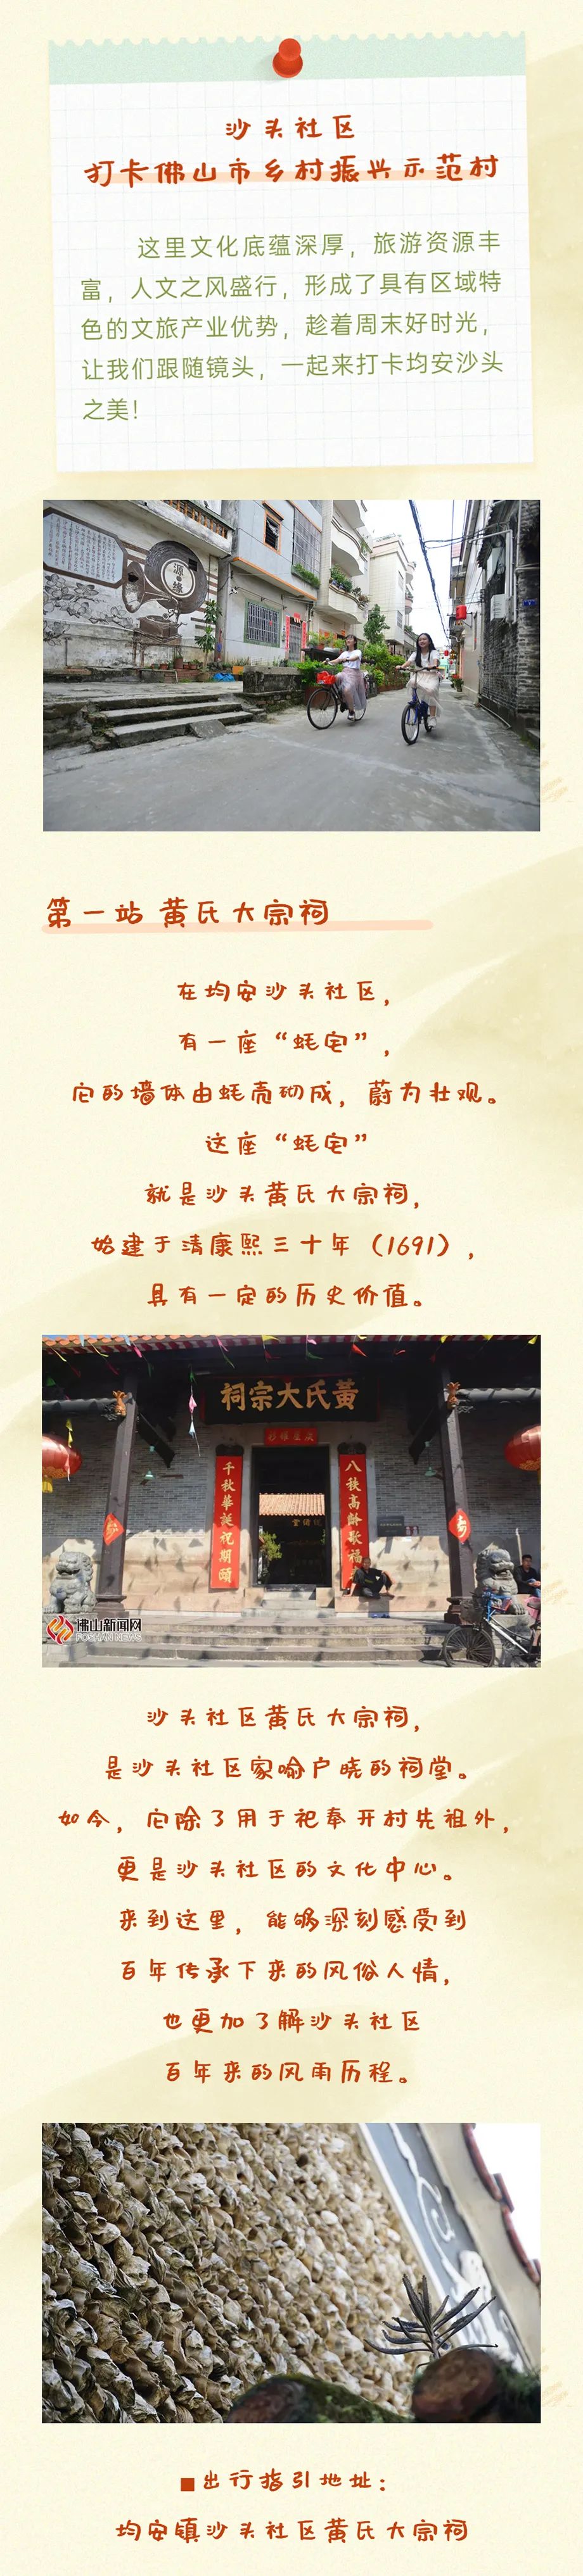 沙头社区
打卡佛山市乡村振兴示范村
这里文化底蕴深厚，旅游资源丰
富，人文之风盛行，形成了具有区域特
色的文旅产业优势，趁着周末好时光，
让我们跟随镜头，一起来打卡均安沙头
之美！
源·缘
第一站 黄氏大宗祠
在均安沙头社区，
有一座“蚝宅”，
它的墙体由蚝壳砌成，蔚为壮观。
这座“蚝宅”
就是沙头黄氏大宗祠，
始建于清康熙三十年（1691），
具有一定的历史价值。
祠宗大氏黄
千秋華誕祝期頤
八秩高齡歌福
壽
佛山新闻网
FOSHAN NEWS
沙头社区黄氏大宗祠，
是沙头社区家喻户晓的祠堂。
如今，它除了用于祀奉开村先祖外，
更是沙头社区的文化中心。
来到这里，能够深刻感受到
百年传承下来的风俗人情，
也更加了解沙头社区
百年来的风雨历程。
■出行指引地址：
均安镇沙头社区黄氏大宗祠